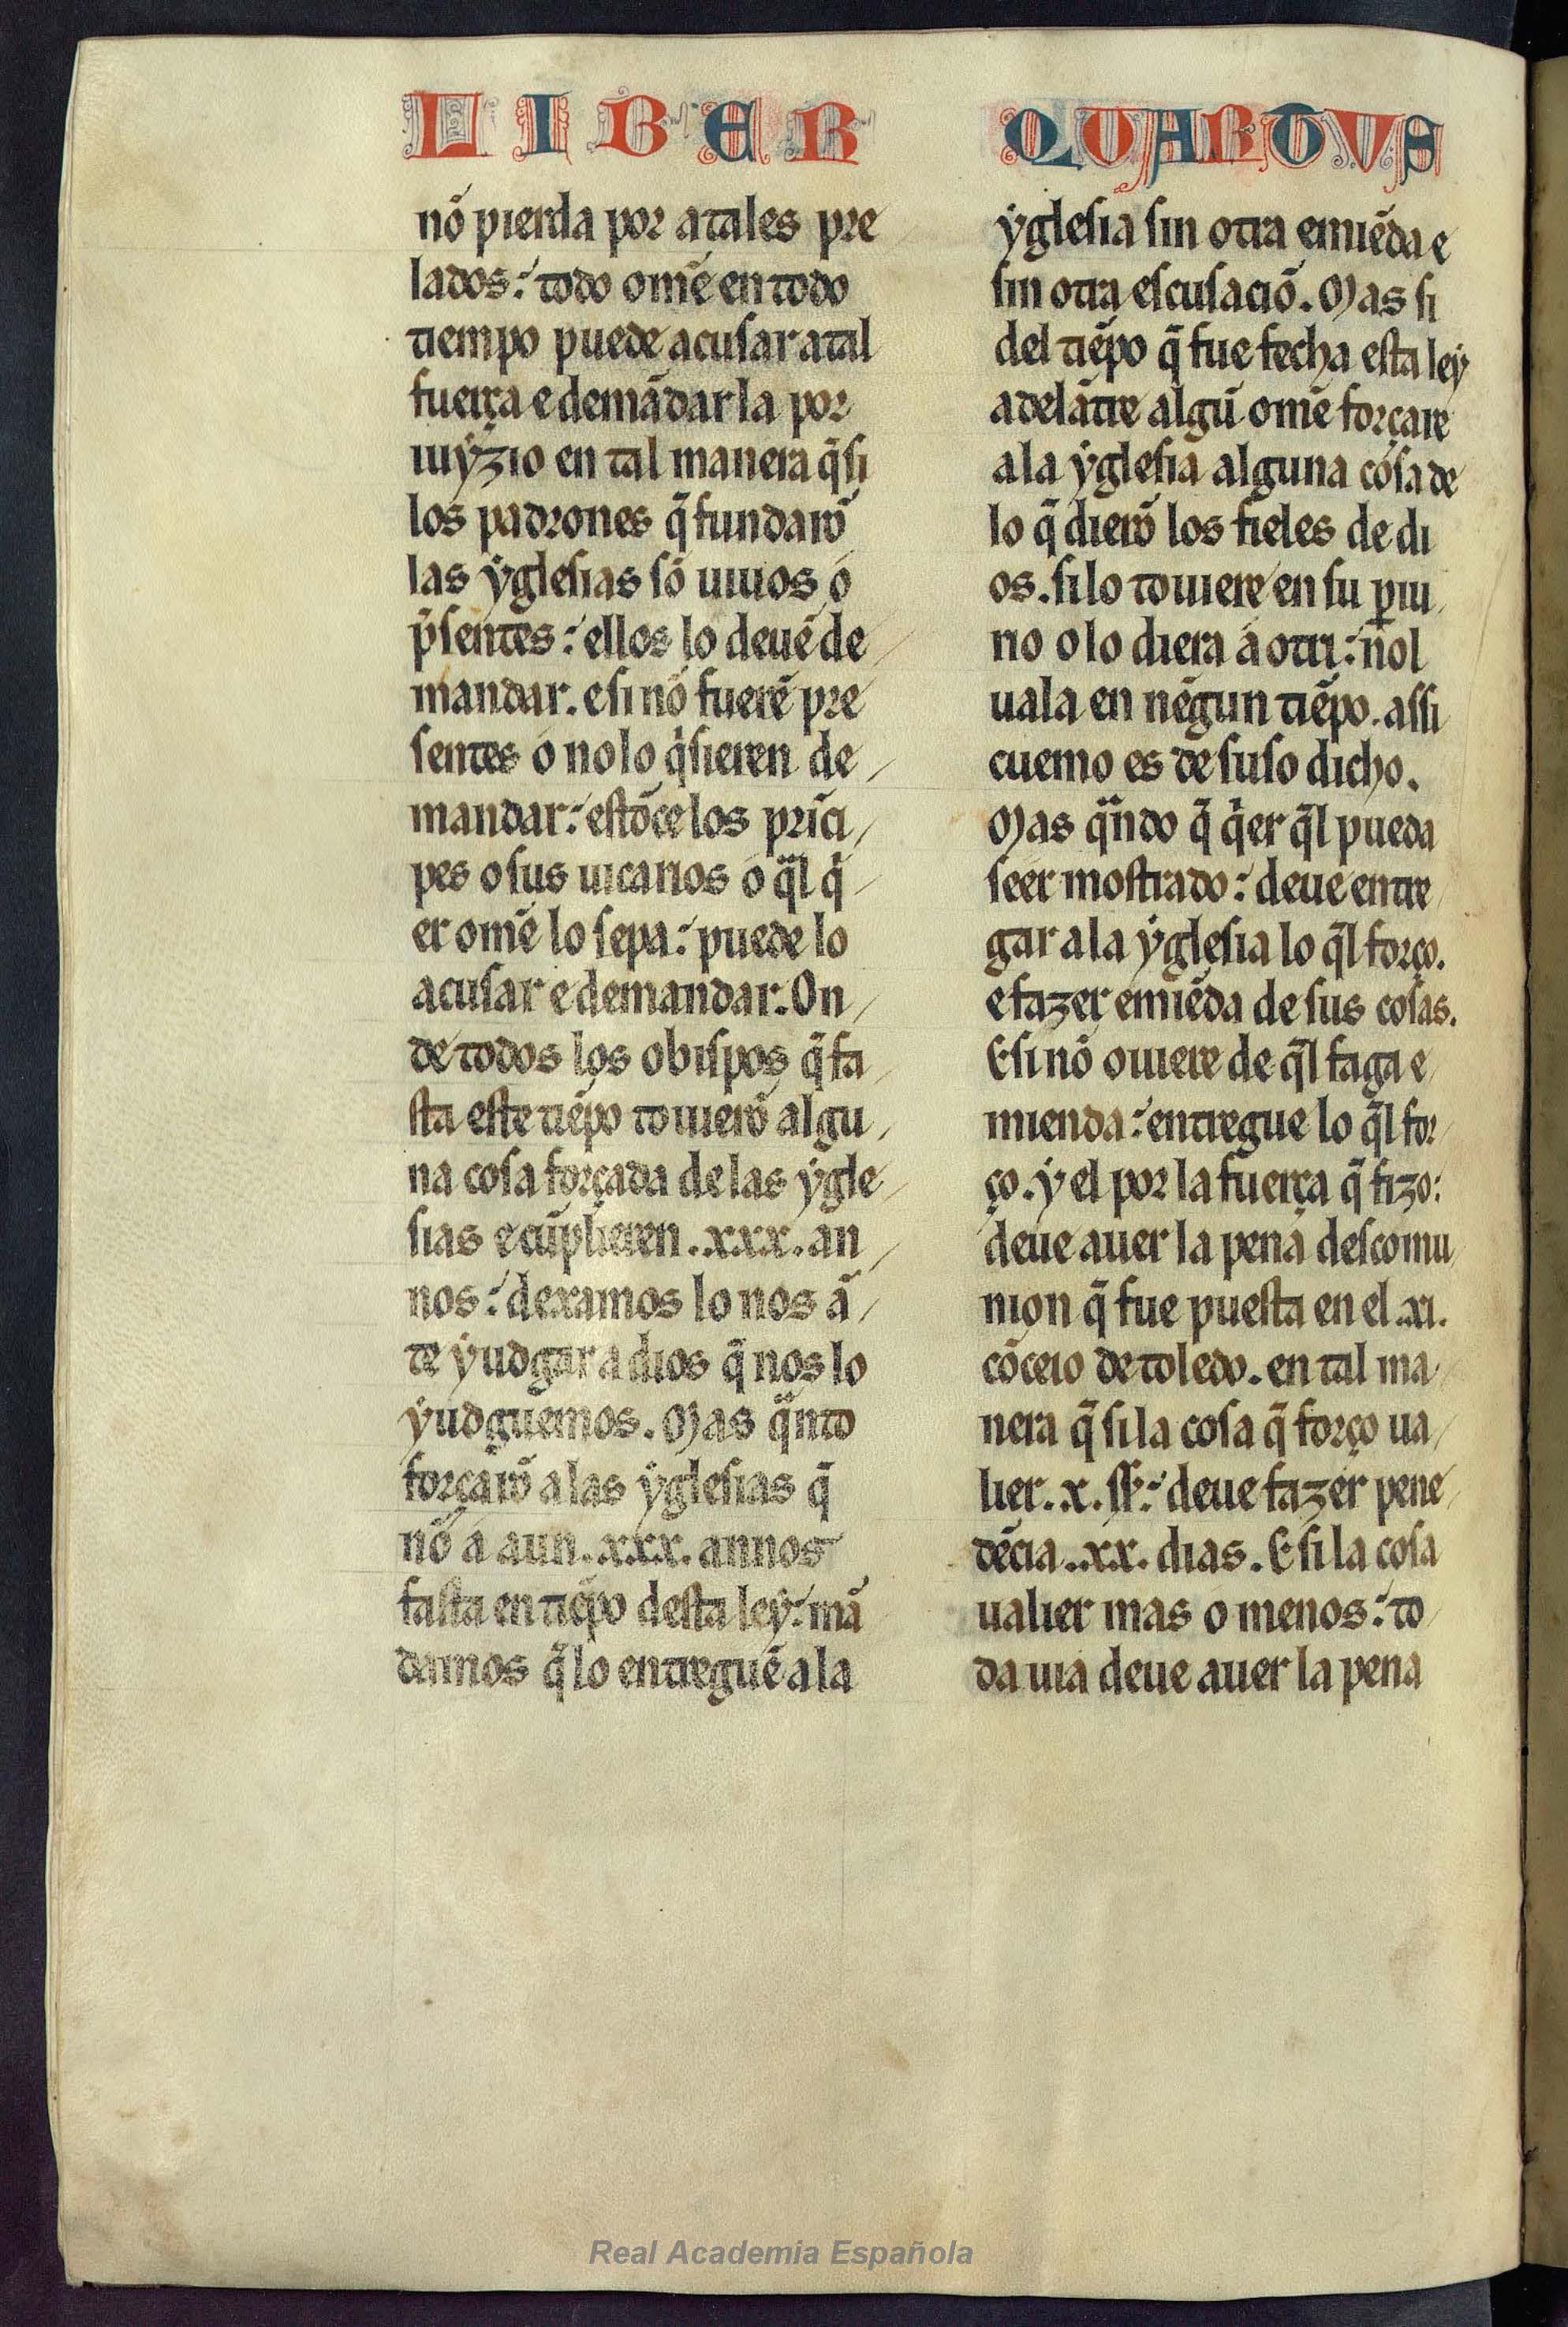 LIBER QUARTUS
nõ pierda por atales pre
lados: todo omẽ en todo
tiempo puede acusar atal
fuerça e demãdar la por
iuyzio en tal manera q̃ si
los padrones q̃ fundarõ
las yglesias sõ uiuos o
p̃sentes: ellos lo deuẽ de
mandar. e si nõ fuerẽ pre
sentes o no lo q̃sieren de
mandar: estõce los prĩci
pes o sus uicarios o q̃l q̃
er omẽ lo sepa: puede lo
acusar e demandar. On
de todos los obispos q̃ fa
sta este tiẽpo touierõ algu
na cosa forçada de las ygle
sias e cũplieren .xxx. an
nos: dexamos lo nos ã
te yudgar a dios q̃ nos lo
yudguemos. Mas q̃nto
forçarõ a las yglesias q̃
nõ a aun .xxx. annos
fasta en tiẽpo desta ley: mã
damos q̃ lo entreguẽ a la
yglesia sin otra emiẽda e
sin otra escusaciõ. Mas si
del tiẽpo q̃ fue fecha esta ley
adelãtre algũ omẽ forçare
a la yglesia alguna cosa de
lo q̃ dierõ los fieles de di
os. si lo touiere en su p̱iu
no o lo diera a otri: ñol
uala en nẽgun tiẽpo. assi
cuemo es de suso dicho.
Mas q̃ndo q̃ q̃er q̃l pueda
seer mostrado: deue entre
gar a la yglesia lo q̃l forço.
e fazer emiẽda de sus cosas.
E si nõ ouiere de q̃l faga e
mienda: entregue lo q̃l for
ço. y el por la fuerça q̃ fizo:
deue auer la pena descomu
nion q̃ fue puesta en el .xi.
cõceio de toledo. en tal ma
nera q̃ si la cosa q̃ forço ua
lier .x. ss̃: deue fazer pene
dẽcia .xx. dias. E si la cosa
ualier mas o menos: to
da uia deue auer la pena
Real Academia Española